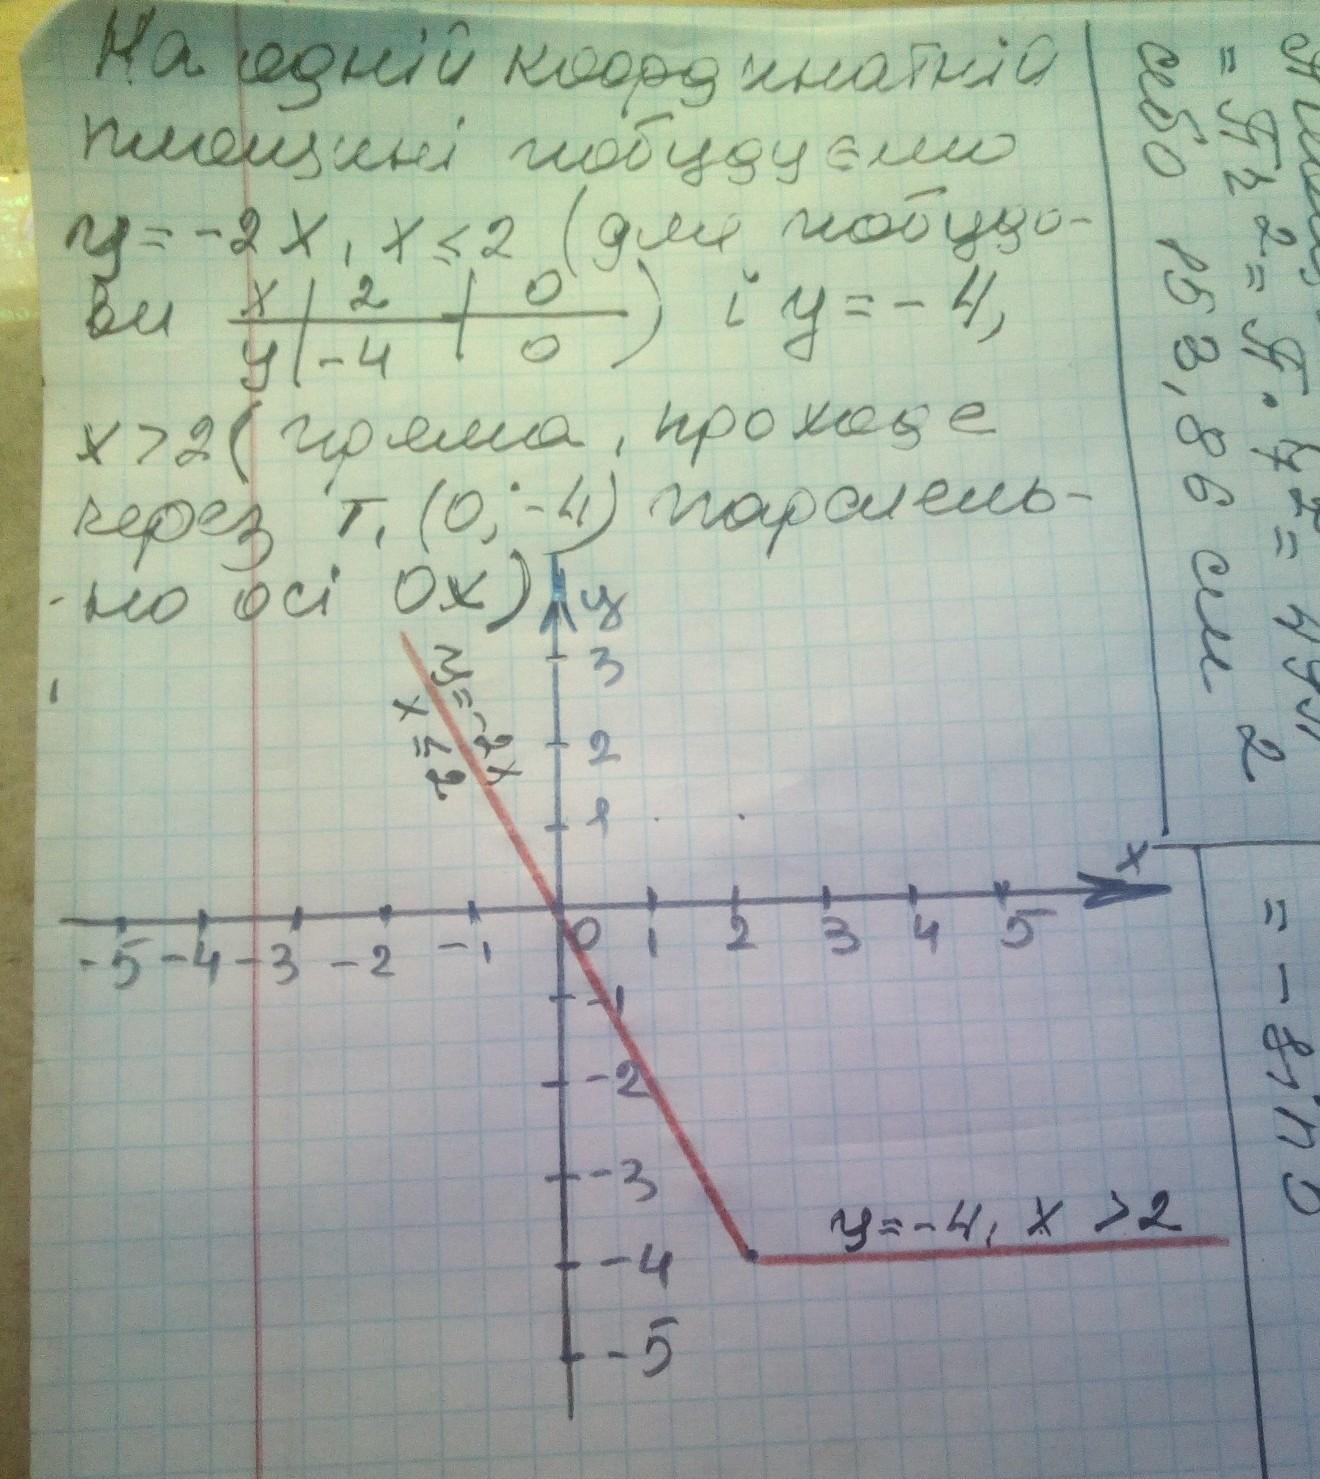 На одній координатній
площині побудуємо
y = -2x, x ≤ 2 (для побудо-
ви x | 2 | 0 ) і y = -4,
y | -4 | 0
x > 2 (пряма, проходе
через т. (0; -4) паралель-
-но осі Ox)
y
3
y = -2x
x ≤ 2
2
1
x
-5 -4 -3 -2 -1 0 1 2 3 4 5
-1
-2
-3
y = -4, x > 2
-4
-5
себо 153,86 см 2